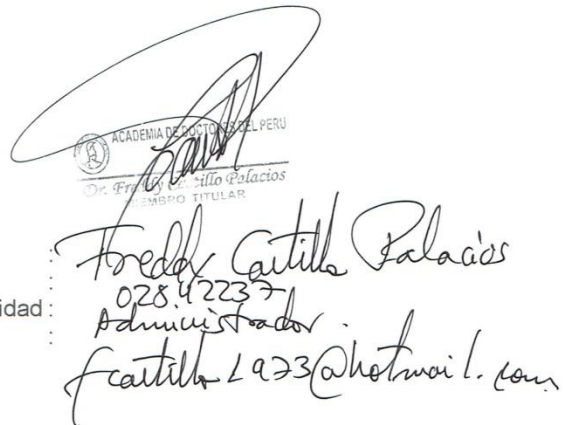 ACADEMIA DE DOCTORES DEL PERU
Dr. Freddy Castillo Palacios
MIEMBRO TITULAR
: Freddy Castillo Palacios
: 02842237
idad : Administrador.
: fcastillo1973@hotmail.com